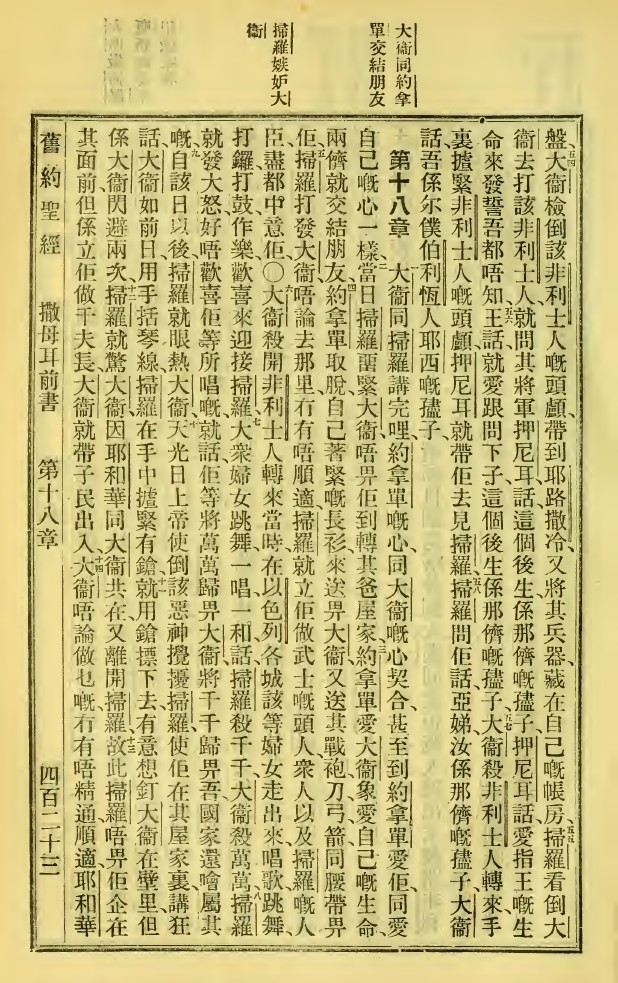 大衞同約拿
單交結朋友
掃羅嫉妒大
衞
盤大衞檢倒該非利士人嘅頭顱帶到耶路撒冷、又將其兵器藏在自己嘅帳房、五五掃羅看倒大
衞去打該非利士人、就問其將軍押尼耳話這個後生係那儕嘅孻子、押尼耳話愛指王嘅生
命來發誓吾都唔知、五六王話就愛跟問下子、這個後生係那儕嘅孻子、五七大衞殺非利士人轉來、手
裏據緊非利士人嘅頭顱、押尼耳就帶佢去見掃羅、五八掃羅問佢話亞娣汝係那儕嘅孻子、大衞
話吾係尔僕伯利恆人耶西嘅孻子、
第十八章 一大衞同掃羅講完哩、約拿單嘅心同大衞嘅心契合、甚至到約拿單愛佢同愛
自己嘅心一樣、二當日掃羅畱緊大衞、唔畀佢到轉其爸屋家、三約拿單愛大衞象愛自己嘅生命、
兩儕就交結朋友、四約拿單取脫自己著緊嘅長衫、來送畀大衞、又送其戰袍刀弓箭同腰帶畀
佢、五掃羅打發大衞唔論去那里、冇有唔順適、掃羅就立佢做武士嘅頭人、衆人以及掃羅嘅人
臣、盡都中意佢、〇六大衞殺開非利士人轉來當時、在以色列各城該等婦女走出來、唱歌跳舞、
打鑼打鼓作樂、歡喜來迎接掃羅、七大衆婦女跳舞一唱一和、話掃羅殺千千、大衞殺萬萬、八掃羅
就發大怒、好唔歡喜佢等所唱嘅、就話佢等將萬萬歸畀大衞、將千千歸畀吾、國家還噲屬其
嘅、九自該日以後、掃羅就眼熱大衞、十天光日上帝使倒該惡神攪擾掃羅、使佢在其屋家裏講狂
話、大衞如前日用手括琴線、掃羅在手中據緊有鎗、十一就用鎗摽下去、有意想釘大衞在壁里、但
係大衞閃避兩次、十二掃羅就驚大衞、因耶和華同大衞共在、又離開掃羅、十三故此掃羅唔畀佢企在
其面前、但係立佢做千夫長、大衞就帶子民出入、十四大衞唔論做乜嘅、冇有唔精通順適、耶和華
舊約聖經 撒母耳前書 第十八章 四百二十三